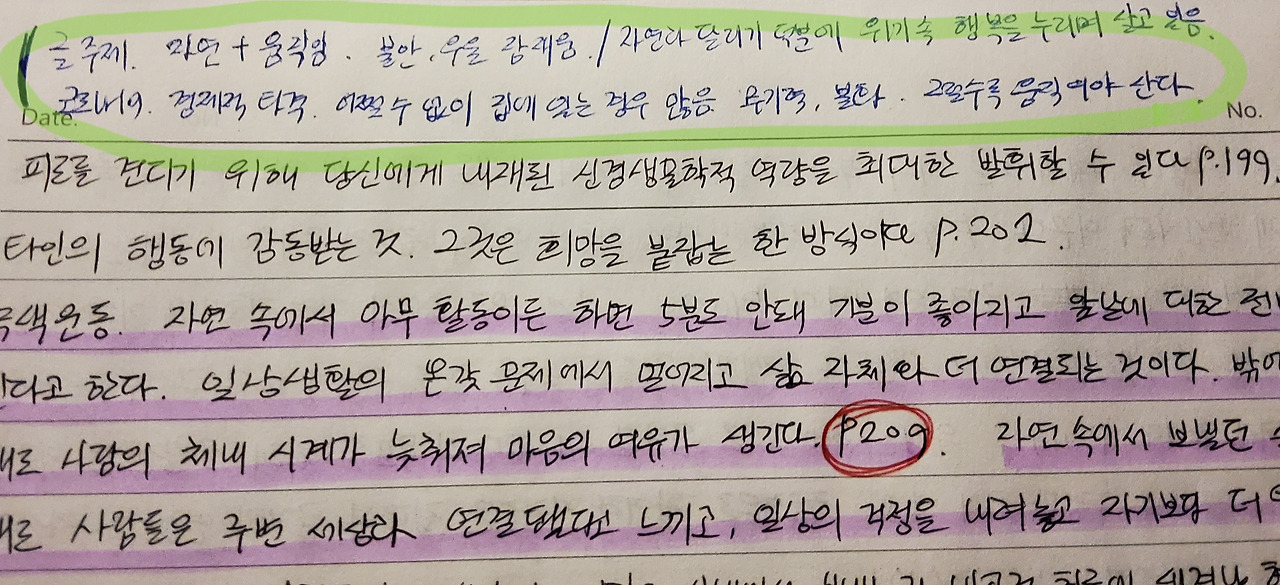 글 주제. 자연 + 움직임. 불안, 우울 잠재움. / 자연과 달리기 덕분에 위기 속 행복을 누리며 살고 있음.
코로나19. 경제적 타격. 어쩔 수 없이 집에 있는 경우 많음 무기력, 불안. 그럴수록 움직여야 산다.
Date. No.
피로를 견디기 위해 당신에게 내재된 신경생물학적 역량을 최대한 발휘할 수 있다 p.199.
타인의 행동에 감동받는 것. 그것은 희망을 붙잡는 한 방식이다 p.202.
녹색운동. 자연 속에서 아무 활동이든 하면 5분도 안돼 기분이 좋아지고 앞날에 대한
다고 한다. 일상생활의 온갖 문제에서 멀어지고 삶 자체와 더 연결되는 것이다. 밖에
대로 사람의 체내 시계가 늦춰져 마음의 여유가 생긴다. p209. 자연속에서 보냈던
대로 사람들은 주변 세상과 연결됐다고 느끼고, 일상의 걱정을 내려놓고 자기보다 더